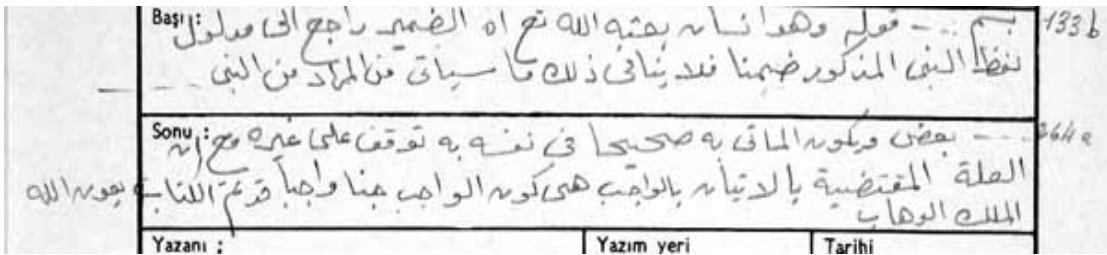 Başı: بسم ... قوله وهو انسان بعثه الله تع اه الضمير راجع الى مدلول 133b
لفظ النبى المذكور ضمنا فلا ينافى ذلك ما سيأتى من المراد من النبى ...
Sonu: ... بعض ويكون الماتى به صحيحا فى نفسه به توقف على غيره مع ان 264a
العلة المقتضية بالاتيان بالواجب هى كون الواجب جنا واجباً قد تم الكتاب بعون الله
الملك الوهاب
Yazanı : Yazım yeri Tarihi